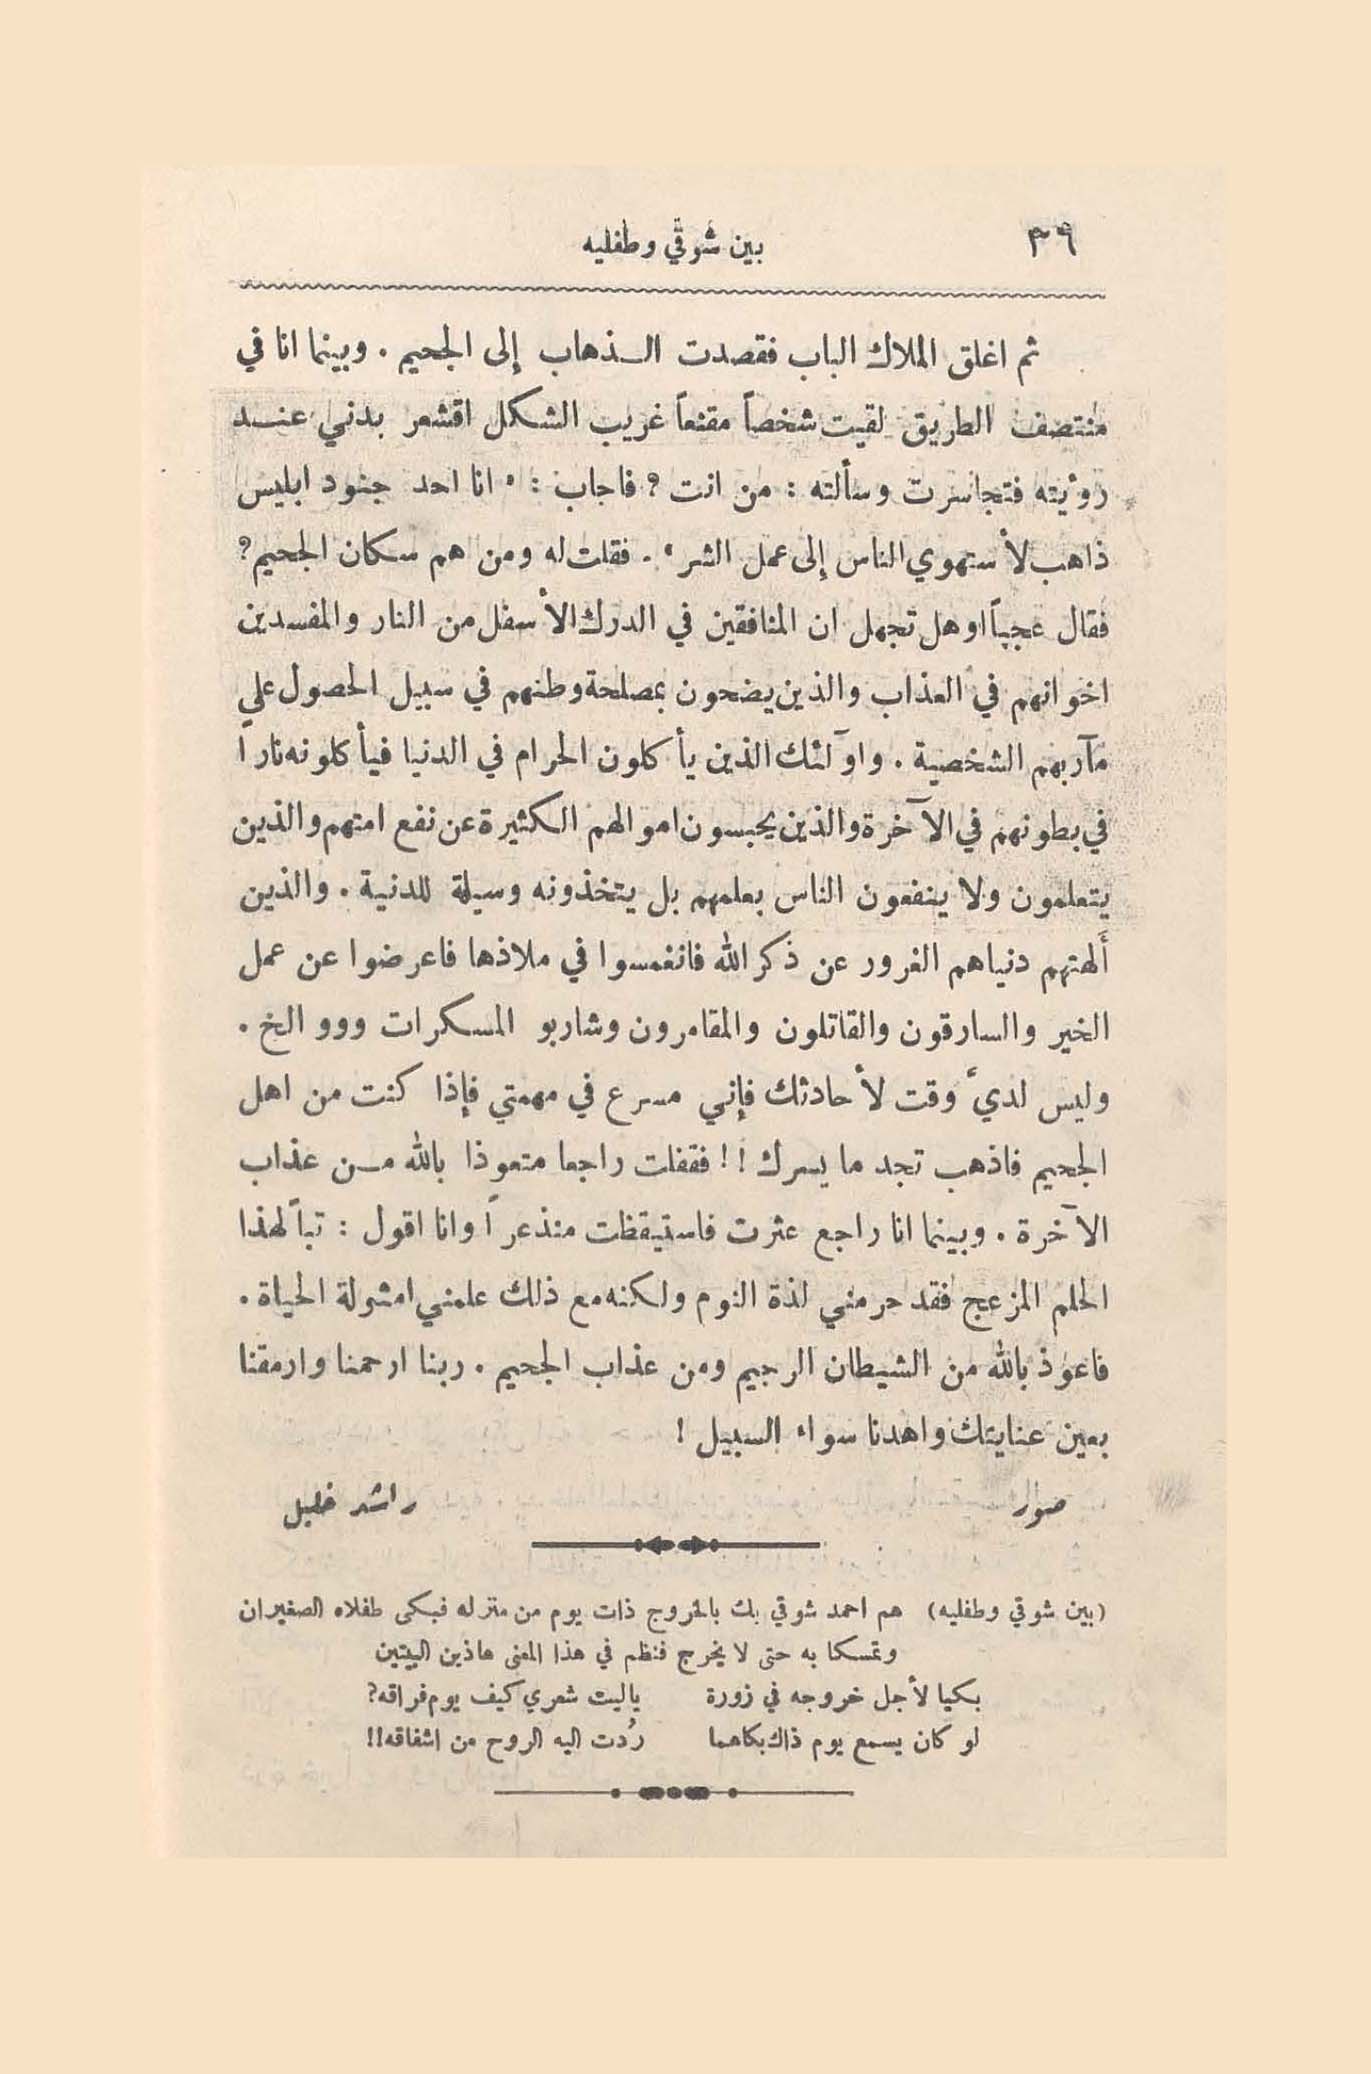 ٣٩
بين شوقي وطفليه
ثم اغلق الملاك الباب فقصدت الـذهاب إلى الجحيم . وبينما انا في
منتصف الطريق لقيت شخصاً مقنعاً غريب الشكل اقشعر بدني عنـد
رؤيته فتجاسرت وسألته : من انت ? فاجاب : " انا احد جنود ابليس
ذاهب لأستهوي الناس إلى عمل الشر " . فقلت له ومن هم سكان الجحيم ?
فقال عجباً او هل تجهل ان المنافقين في الدرك الأسفل من النار والمفسدين
اخوانهم في العذاب والذين يضحون بمصلحة وطنهم في سبيل الحصول على
مآربهم الشخصية . واولئك الذين يأكلون الحرام في الدنيا فيأكلونه ناراً
في بطونهم في الآخرة والذين يحبسون اموالهم الكثيرة عن نفع امتهم والذين
يتعلمون ولا ينفعون الناس بعلمهم بل يتخذونه وسيلة للدنية . والذين
ألهتهم دنياهم الغرور عن ذكر الله فانغمسوا في ملاذها فاعرضوا عن عمل
الخير والسارقون والقاتلون والمقامرون وشاربو المسكرات ووو الخ .
وليس لديَّ وقت لأحادثك فإني مسرع في مهمتي فإذا كنت من اهل
الجحيم فاذهب تجد ما يسرك !! فقفلت راجعا متعوذا بالله مـن عذاب
الآخرة . وبينما انا راجع عثرت فاستيقظت منذعراً وانا اقول : تباً لهذا
الحلم المزعج فقد حرمني لذة النوم ولكنه مع ذلك علمني امثولة الحياة .
فاعوذ بالله من الشيطان الرجيم ومن عذاب الجحيم . ربنا ارحمنا وارمقنا
بعين عنايتك واهدنا سواء السبيل !
صور راشد خليل
(بين شوقي وطفليه) هم احمد شوقي بك بالخروج ذات يوم من منزله فبكى طفلاه الصغيران
وتمسكا به حتى لا يخرج فنظم في هذا المعنى هاذين البيتين
بكيا لأجل خروجه في زورة ياليت شعري كيف يوم فراقه?
لو كان يسمع يوم ذاك بكاهما رُدت اليه الروح من اشفاقه!!